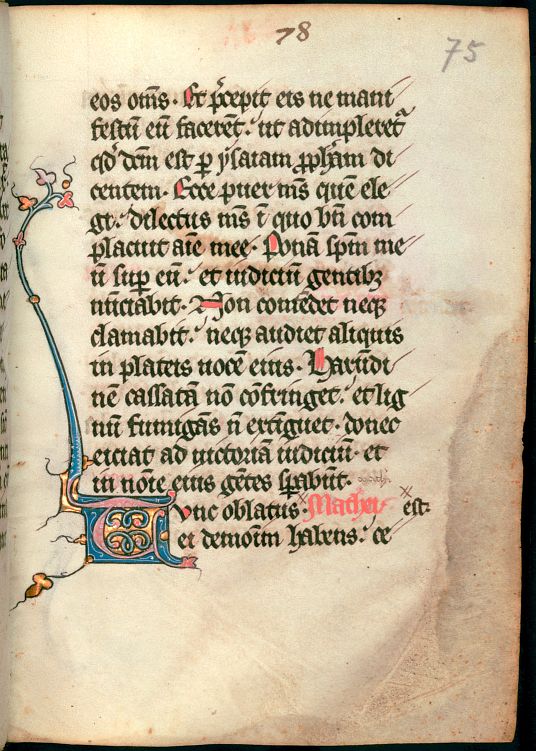 78
75
eos om̄s. Et p̄cepit eis ne mani
festū eū facerēt. ut adimpleret᷑
qd̓ dc̄m est p ysaiam ꝓph̄am di
centem. Ecce puer mȝ quē ele
gi. dilectus mȝ ī quo bn̄ com
placuit aīe mee. Ponā spm̄ me
ū sup eū. et iudiciū gentibȝ
nūciabit. Non contēdet neqȝ
clamabit. neqȝ audiet aliquis
in plateis uocē eius. Harūdi
nē cassatā nō cōfringet. et lig
nū fumigās n̄ extīguet. donec
eiciat ad uictoriā iudiciū. et
in noīe eius gētes sp̄abūt.
Tunc oblatus × Mathei × est.
ei demoīm habens. ce